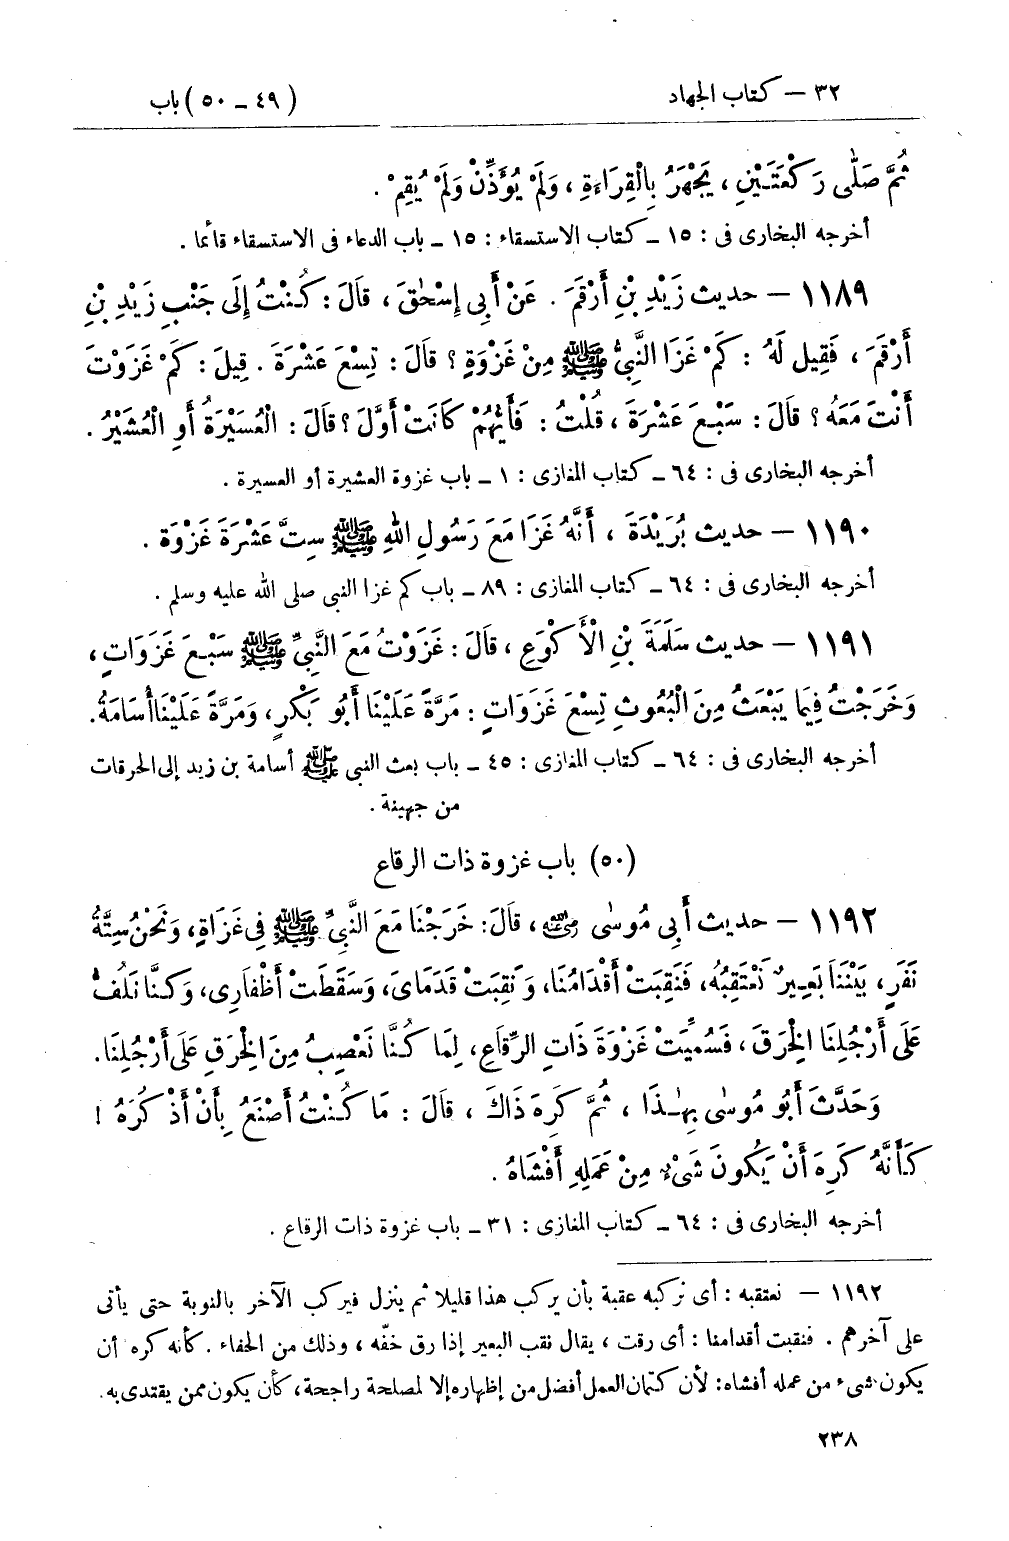 ٣٢ – كتاب الجهاد (٤٩ – ٥٠) باب
ثُمَّ صَلَّى رَكْعَتَيْنِ ، يَجْهَرُ بِالْقِرَاءَةِ ، وَلَمْ يُؤَذِّنْ وَلَمْ يُقِمْ .
أخرجه البخارى فى : ١٥ – كتاب الاستسقاء : ١٥ – باب الدعاء فى الاستسقاء قائما .
١١٨٩ – حديث زَيْدِ بْنِ أَرْقَمَ . عَنْ أَبِى إِسْحٰقَ ، قَالَ : كُنْتُ إِلَى جَنْبِ زَيْدِ بْنِ
أَرْقَمَ ، فَقِيلَ لَهُ : كَمْ غَزَا النَّبِىُّ ﷺ مِنْ غَزْوَةٍ ؟ قَالَ : تِسْعَ عَشْرَةَ . قِيلَ : كَمْ غَزَوْتَ
أَنْتَ مَعَهُ ؟ قَالَ : سَبْعَ عَشْرَةَ ، قُلْتُ : فَأَيُّهُمْ كَانَتْ أَوَّلَ ؟ قَالَ : الْعُسَيْرَةُ أَوِ الْعُشَيْرُ .
أخرجه البخارى فى : ٦٤ – كتاب المغازى : ١ – باب غزوة العشيرة أو العسيرة .
١١٩٠ – حديث بُرَيْدَةَ ، أَنَّهُ غَزَا مَعَ رَسُولِ اللهِ ﷺ سِتَّ عَشْرَةَ غَزْوَة .
أخرجه البخارى فى : ٦٤ – كتاب المغازى : ٨٩ – باب كم غزا النبى صلى الله عليه وسلم .
١١٩١ – حديث سَلَمَةَ بْنِ الْأَكْوَعِ ، قَالَ : غَزَوْتُ مَعَ النَّبِىِّ ﷺ سَبْعَ غَزَوَاتٍ ،
وَخَرَجْتُ فِيمَا يَبْعَثُ مِنَ الْبُعُوثِ تِسْعَ غَزَوَاتٍ : مَرَّةً عَلَيْنَا أَبُو بَكْرٍ ، وَمَرَّةً عَلَيْنَا أُسَامَةُ .
أخرجه البخارى فى : ٦٤ – كتاب المغازى : ٤٥ – باب بعث النبى ﷺ أسامة بن زيد إلى الحرقات
من جهينة .
(٥٠) باب غزوة ذات الرقاع
١١٩٢ – حديث أَبِى مُوسٰى رضي الله عنه ، قَالَ : خَرَجْنَا مَعَ النَّبِىِّ ﷺ فِى غَزَاةٍ ، وَنَحْنُ سِتَّةُ
نَفَرٍ ، بَيْنَنَا بَعِيرٌ نَعْتَقِبُهُ ، فَنَقِبَتْ أَقْدَامُنَا ، وَنَقِبَتْ قَدَمَاىَ ، وَسَقَطَتْ أَظْفَارِى ، وَكُنَّا نَلُفُّ
عَلَى أَرْجُلِنَا الْخِرَقَ ، فَسُمِّيَتْ غَزْوَةَ ذَاتِ الرِّقَاعِ ، لِمَا كُنَّا نَعْصِبُ مِنَ الْخِرَقِ عَلَى أَرْجُلِنَا .
وَحَدَّثَ أَبُو مُوسٰى بِهٰذَا ، ثُمَّ كَرِهَ ذَاكَ ، قَالَ : مَا كُنْتُ أَصْنَعُ بِأَنْ أَذْكُرَهُ !
كَأَنَّهُ كَرِهَ أَنْ يَكُونَ شَىْءٌ مِنْ عَمَلِهِ أَفْشَاهُ .
أخرجه البخارى فى : ٦٤ – كتاب المغازى : ٣١ – باب غزوة ذات الرقاع .
١١٩٢ – نعتقبه : أى نركبه عقبة بأن يركب هذا قليلا ثم ينزل فيركب الآخر بالنوبة حتى يأتى
على آخرهم . فنقبت أقدامنا : أى رقت ، يقال نقب البعير إذا رق خفّه ، وذلك من الحفاء . كأنه كره أن
يكون شىء من عمله أفشاه : لأن كتمان العمل أفضل من إظهاره إلا لمصلحة راجحة ، كأن يكون ممن يقتدى به .
٢٣٨